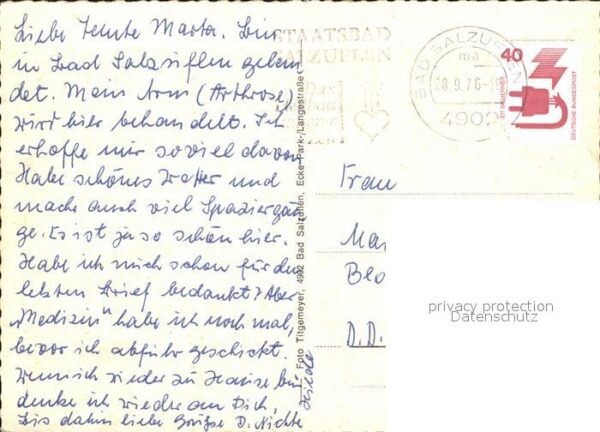 Liebe Tante Marta. Bin
in Bad Salzuflen gelan
det. Mein Arm (Arthrose)
wird hier behandelt. Ich
erhoffe mir so viel davon
Habe schönes Wetter und
mache auch viel Spaziergän
ge. Es ist ja so schön hier.
Habe ich mich schon für den
letzten Brief bedankt? Aber
"Medizin" habe ich noch mal,
bevor ich abfuhr geschickt.
Wenn ich wieder zu Hause bin
denke ich wieder an Dich,
Bis dahin liebe Grüße D. Nichte
Foto Titgemeyer, 4902 Bad Salzuflen, Ecke Park-/Langestraße
STAATSBAD
SALZUFLEN
BAD SALZUFLEN
ma
28.9.76
4902
40
DEUTSCHE BUNDESPOST
Frau
Mar
D.D.
privacy protection
Datenschutz